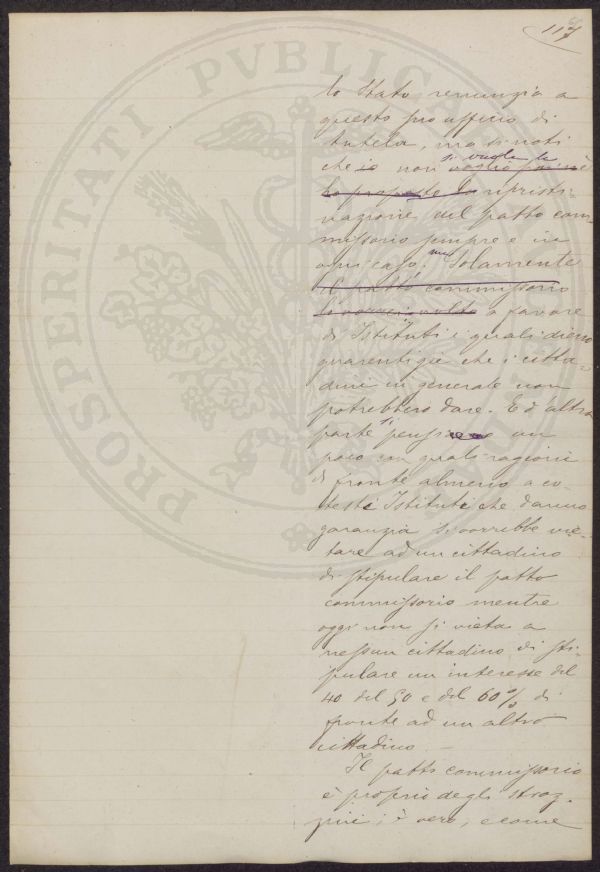 117
lo Stato renunzia a
questo suo ufficio di
tutela, ma si noti
si vuole la
che io non voglio
la proposta la ripristi-
nazione del patto com-
missorio sempre e in
ogni caso, Solamente
il patto commissorio
lo a favore
di Istituti i quali dieno
guarentigie che i citta-
dini in generale non
potrebbero dare. E d'altra
parte si pensi un
poco in quali ragioni
di fronte almeno a co-
testi Istituti che danno
garanzia si vorrebbe vie-
tare ad un cittadino
di stipulare il patto
commissorio mentre
oggi non si vieta a
nessun cittadino di sti-
pulare un interesse del
40 del 50 e del 60% di
fronte ad un altro
cittadino. —
Il patto commissorio
è proprio degli stroz-
zini, è vero, e come
PROSPERITATI PVBLICAE